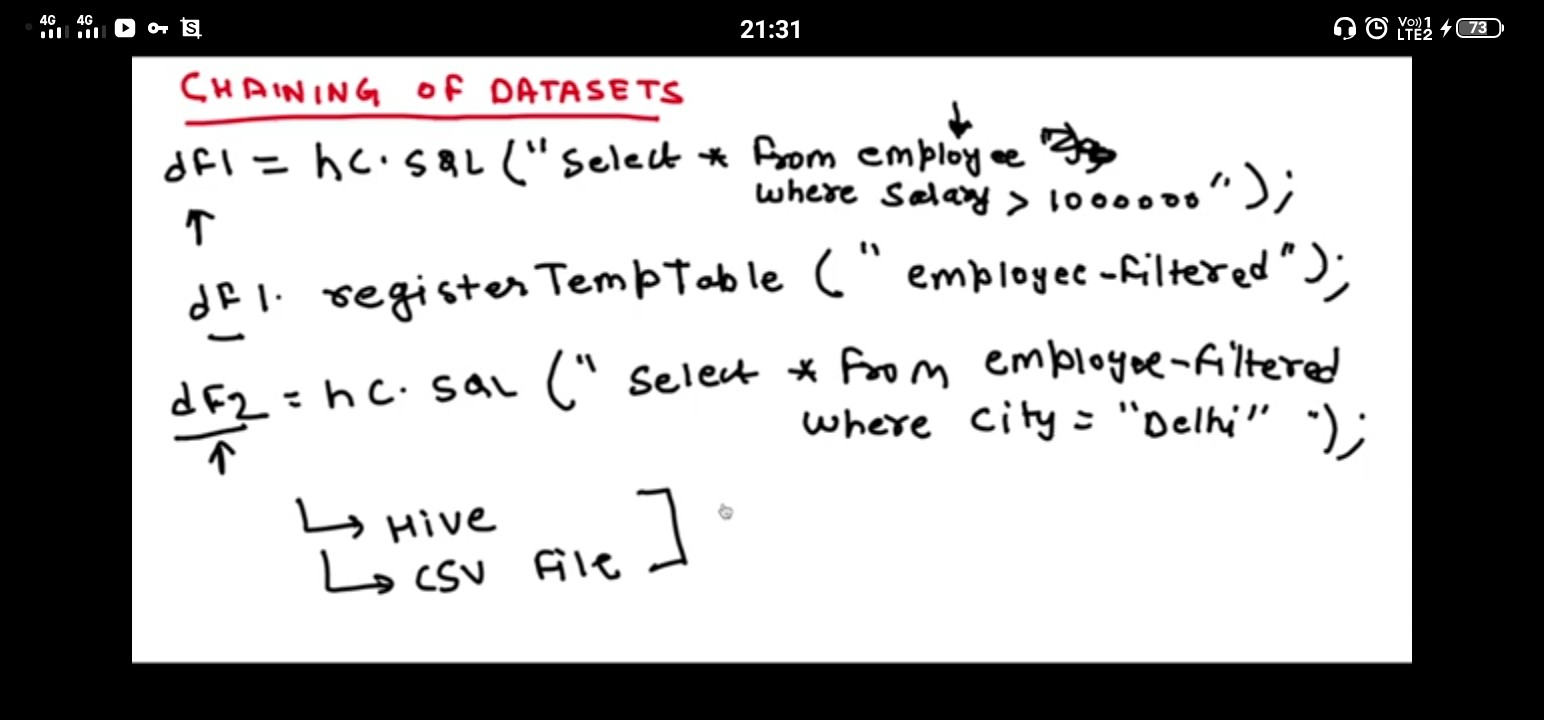 4G 4G 21:31 Vo)) 1 LTE2 73
CHAINING OF DATASETS
dF1 = hc.sQL ("Select * from employee
where Salary > 1000000");
dF1. registerTempTable ("employee-filtered");
dF2 = hc.sQL ("Select * from employee-filtered
where city = "Delhi" ");
Hive
CSV File